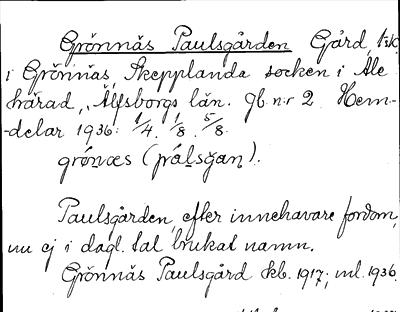 Grönnäs Paulsgården Gård,
i Grönnäs, Skepplanda socken i Ale
härad, Älfsborgs län. Jb.n:r 2 Hem-
-delar 1936: 1/4. 1/8. 5/8.
grónæs (pá̄l̥sgaɳ).
Paulsgården, efter innehavare fordom,
nu ej i dagl. tal brukat namn.
Grönnäs Paulsgård kb. 1917; ml. 1936.